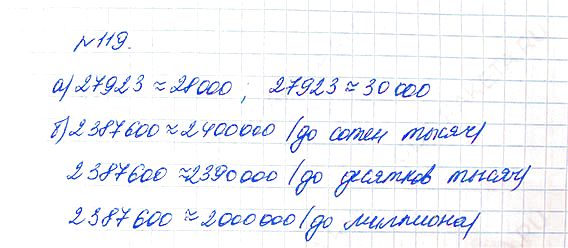 №119.
а) 27923 ≈ 28000; 27923 ≈ 30000
б) 2387600 ≈ 2400000 (до сотен тысяч)
2387600 ≈ 2390000 (до десятков тысяч)
2387600 ≈ 2000000 (до миллиона)